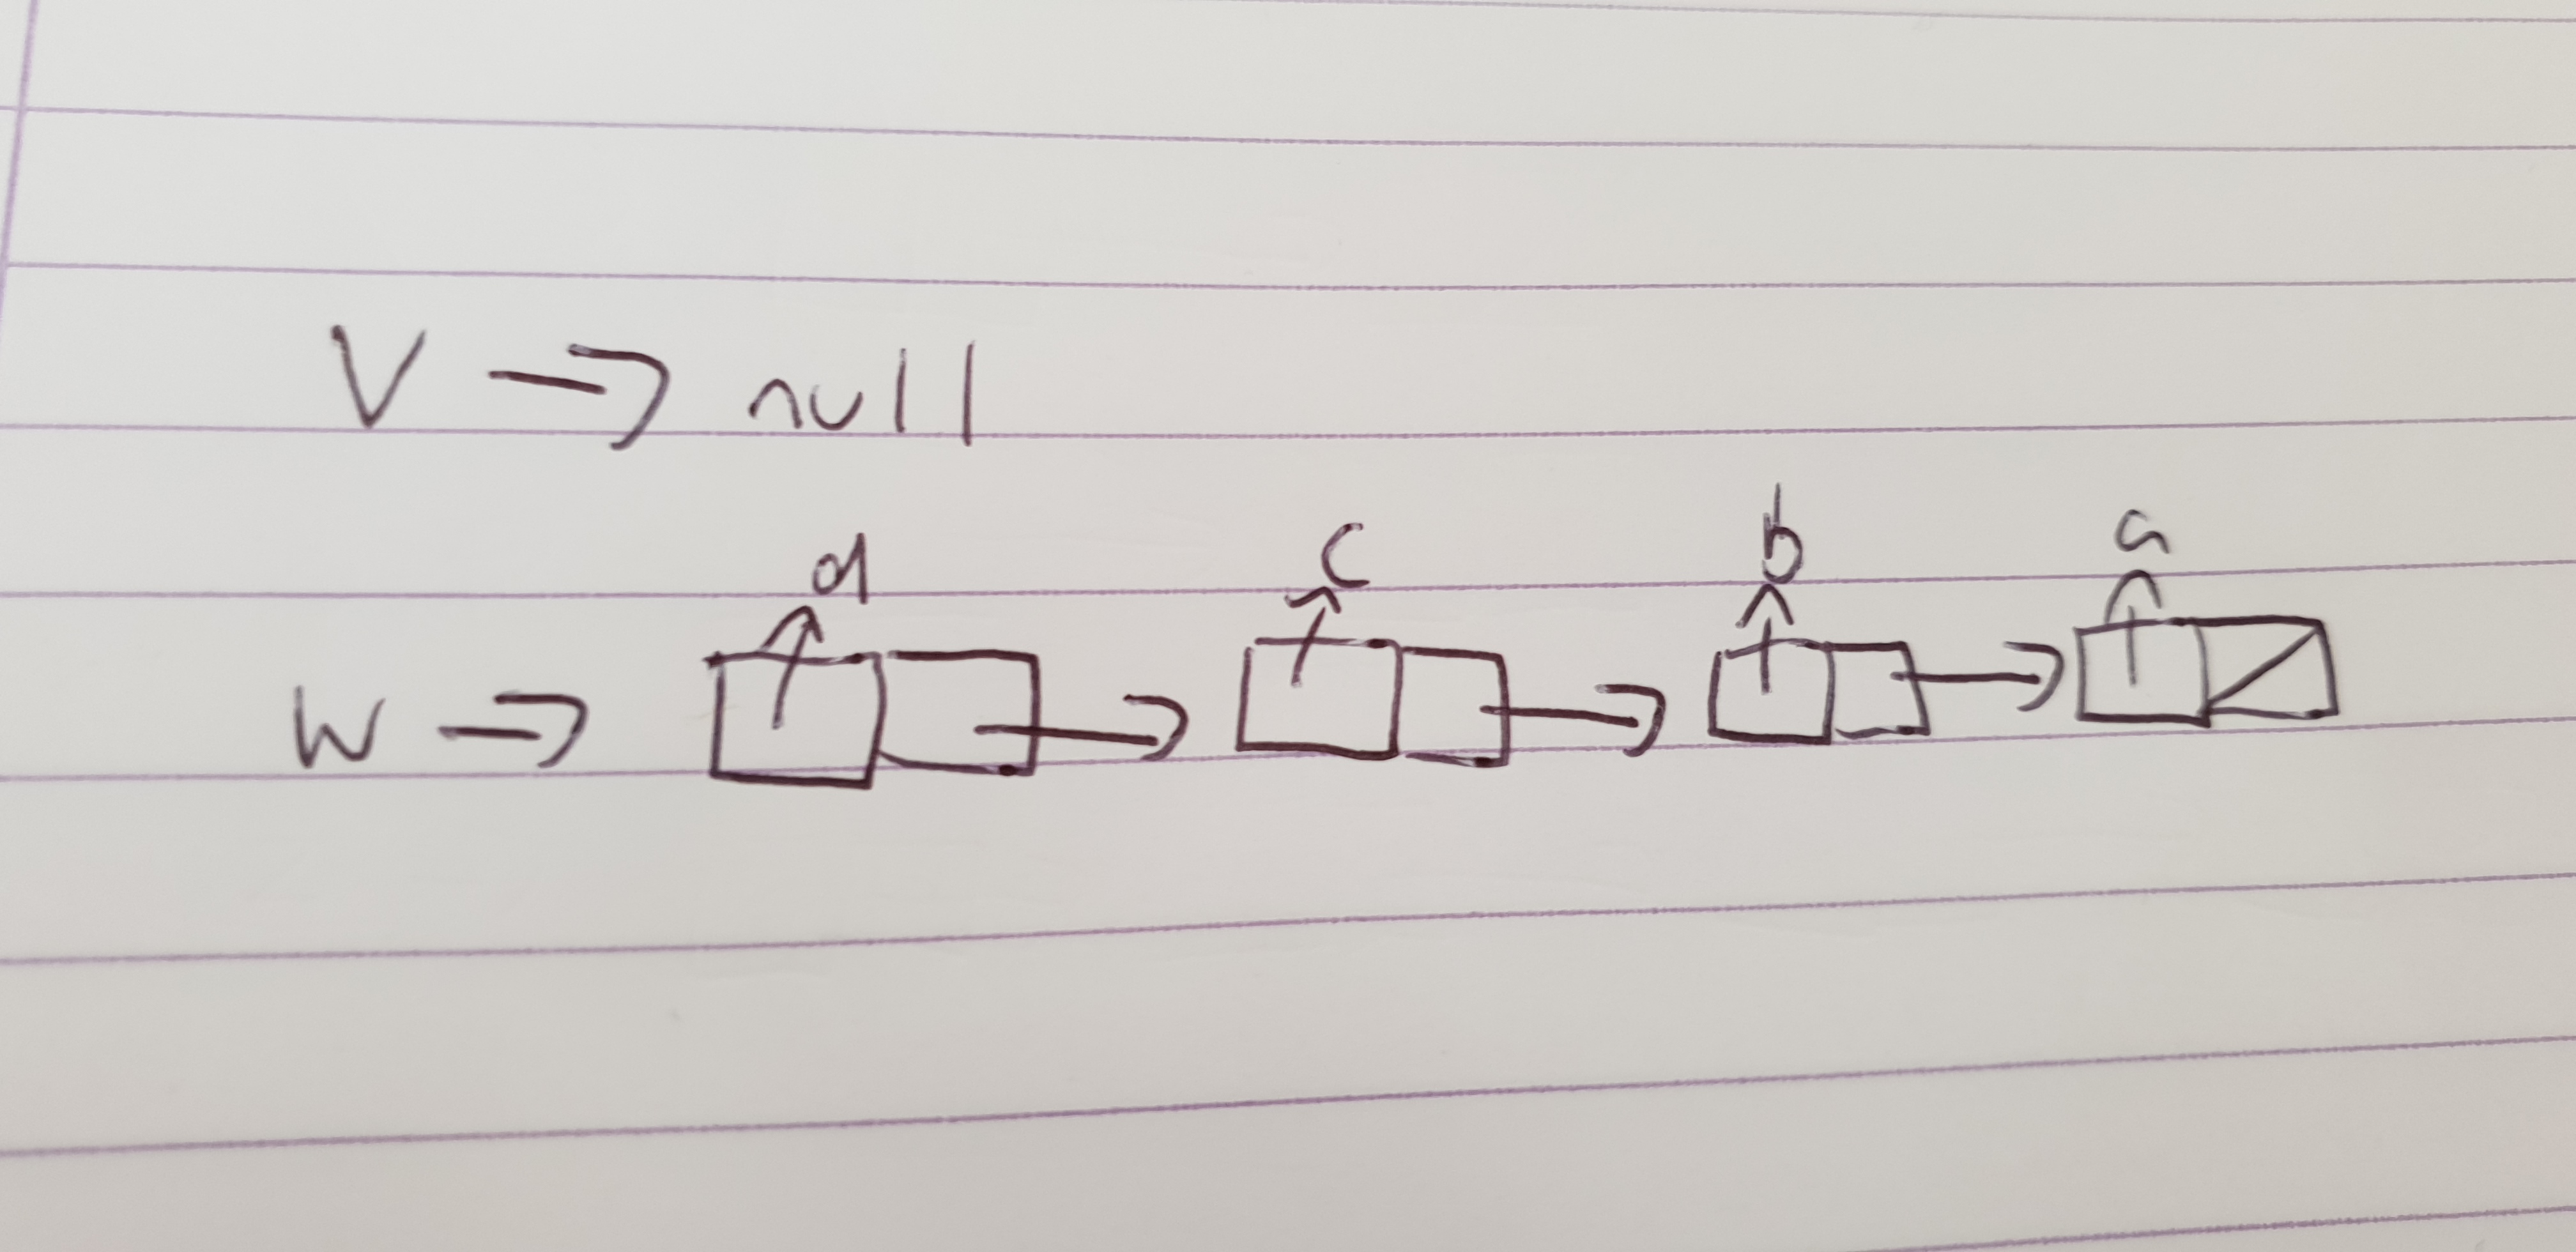 V → null
d c b a
W →